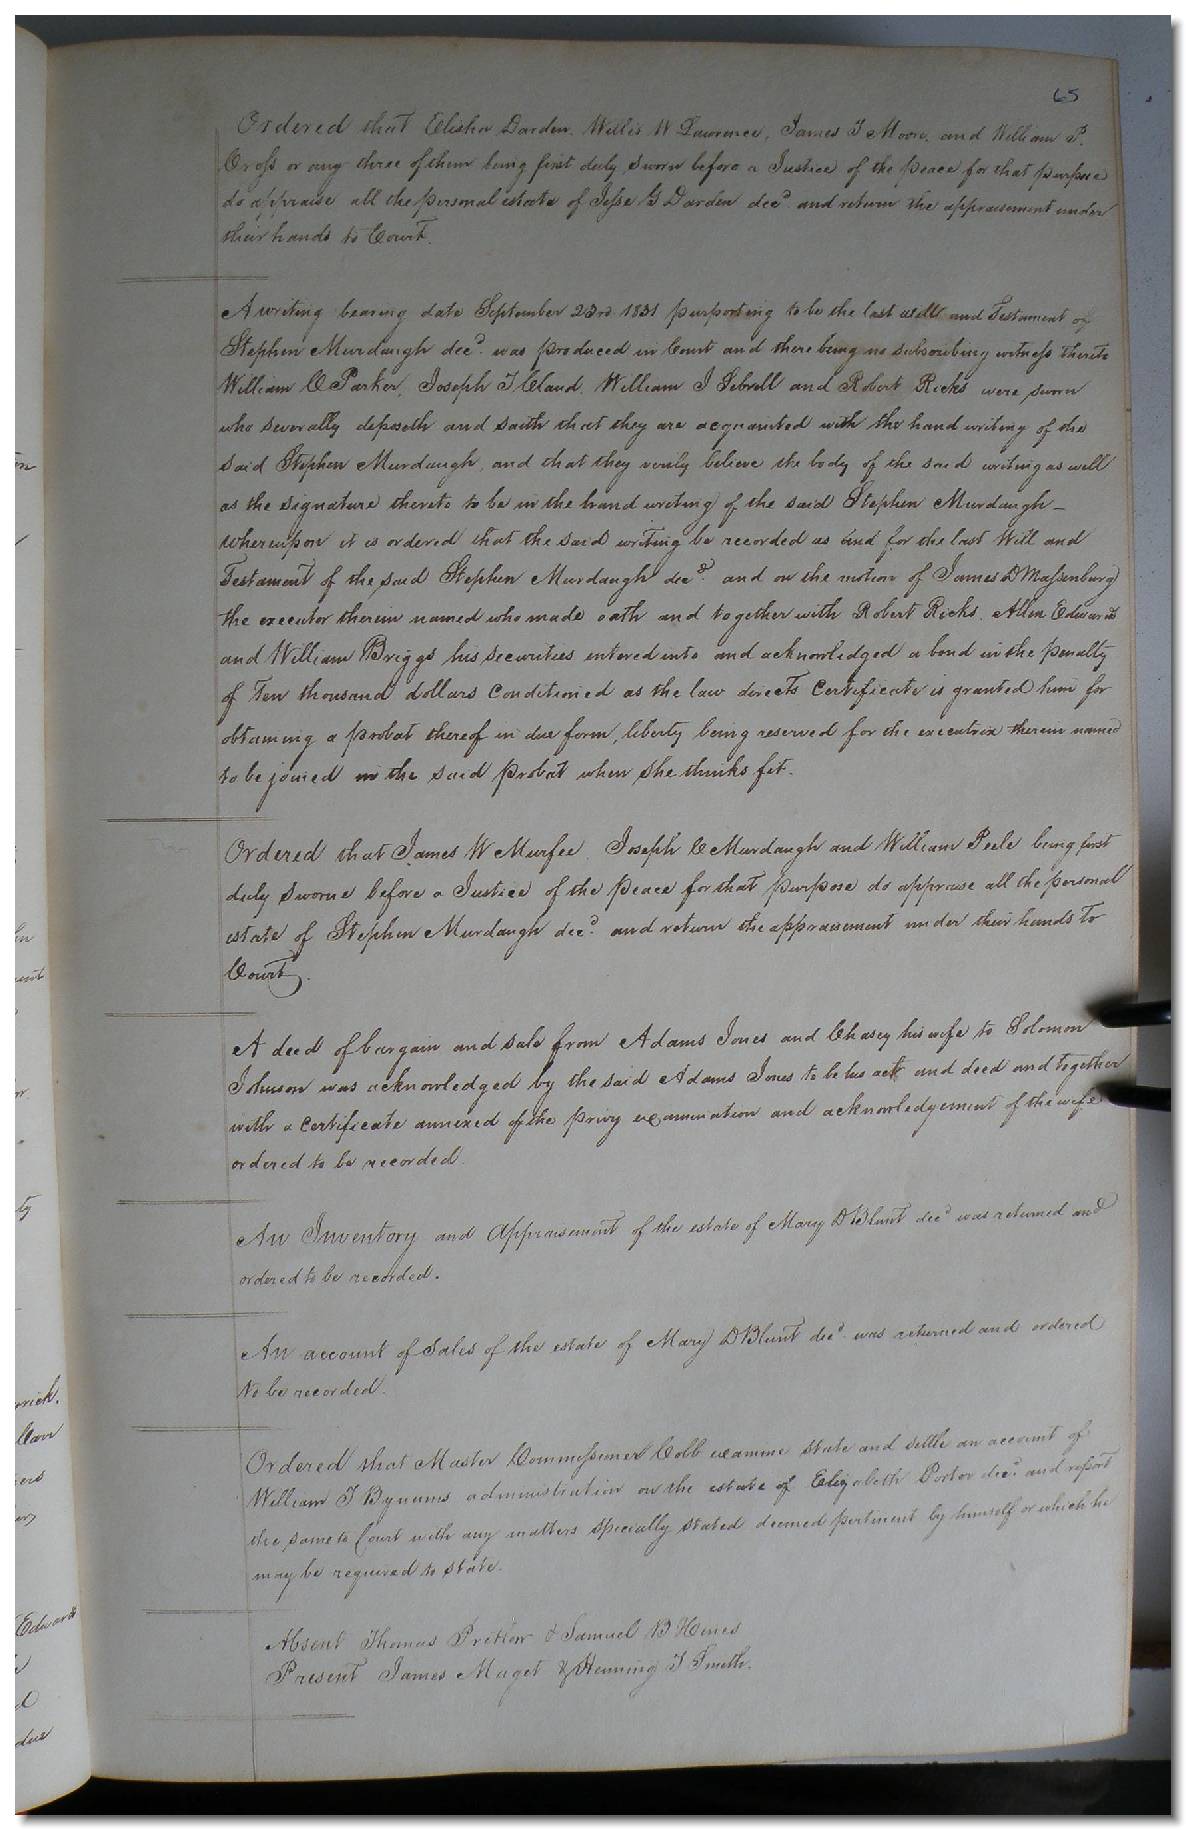 65
Ordered that Elisha Darden, Willis W Lawrence, James T Moore, and William P.
Cross or any three of them being first duly sworn before a Justice of the peace for that purpose
do appraise all the personal estate of Jesse G Darden decd. and return the appraisement under
their hands to Court.
A writing bearing date September 23rd 1831 purporting to be the last will and Testament of
Stephen Murdaugh decd. was produced in Court and there being no subscribing witness thereto
William C Parker, Joseph T Claud, William J Sebrell and Robert Ricks were sworn
who severally deposeth and saith that they are acquainted with the hand writing of the
said Stephen Murdaugh, and that they verily believe the body of the said writing as well
as the signature thereto to be in the hand writing of the said Stephen Murdaugh –
whereupon it is ordered that the said writing be recorded as and for the last Will and
Testament of the said Stephen Murdaugh decd. and on the motion of James D Massenburg
the executor therein named who made oath and together with Robert Ricks, Allen Edwards
and William Briggs his securities entered into and acknowledged a bond in the penalty
of Ten thousand dollars conditioned as the law directs Certificate is granted him for
obtaining a probat thereof in due form, liberty being reserved for the executrix therein named
to be joined in the said probat when she thinks fit.
Ordered that James W Murfee, Joseph C Murdaugh and William Peele being first
duly sworne before a Justice of the Peace for that purpose do appraise all the personal
estate of Stephen Murdaugh decd. and return the appraisement under their hands to
Court.
A deed of bargain and sale from Adams Jones and Chasey his wife to Solomon
Johnson was acknowledged by the said Adams Jones to be his act and deed and together
with a certificate annexed of the privy examination and acknowledgement of the wife
ordered to be recorded.
An Inventory and Appraisement of the estate of Mary D Blunt decd was returned and
ordered to be recorded.
An account of Sales of the estate of Mary D Blunt decd. was returned and ordered
to be recorded.
Ordered that Master Commissioner Cobb examine state and settle an account of
William T Bynums administration on the estate of Elizabeth Porter decd. and report
the same to Court with any matters specially stated deemed pertinent by himself or which he
may be required to state.
Absent Thomas Pretlow & Samuel B Hines
Present James Maget & Henning T Smith.